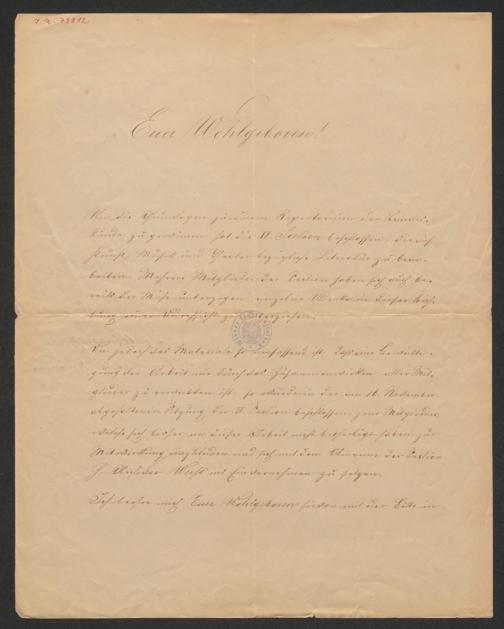 Euer Wohlgeboren!
Um die Grundlagen zu einem Repertorium der Landes-
kunde zu gewinnen hat die II Section beschlossen, die auf
Kunst, Musik und Theater bezügliche Literatur zu bear-
beiten. Mehrere Mitglieder der Section haben sich auch be-
reits der Mühe unterzogen einzelne Werke in dieser Rich-
tung einer Durchsicht zu unterziehen.
Da jedoch das Materiale so umfassend ist, daß eine Bewälti-
gung der Arbeit nur durch das Zusammenwirken aller Mit-
glieder zu erwarten ist, so wurde in der am 16. November
abgehaltenen Sitzung der II Section beschlossen, jene Mitglieder,
welche sich bisher an dieser Arbeit nicht betheiligt haben zur
Mitwirkung einzuladen und sich mit dem Obmanne der Section
H. Weiß ins Einvernehmen zu setzen.
Ich beehre mich Euer Wohlgeboren hiermit der Bitte in